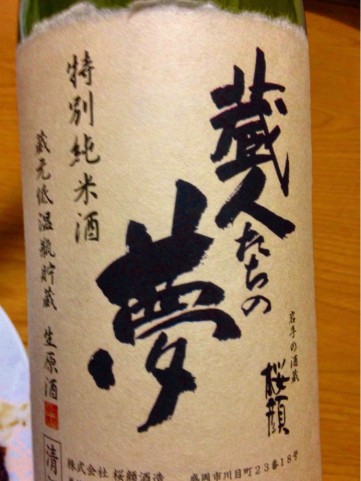 蔵人たちの
夢
岩手の酒蔵
桜顔
特別純米酒
蔵元低温瓶貯蔵 生原酒
清
株式会社 桜顔酒造
盛岡市川目町23番18号